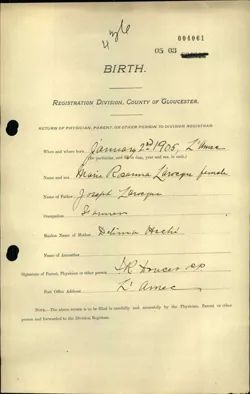 004061
05 03
BIRTH.
REGISTRATION DIVISION, COUNTY OF GLOUCESTER.
RETURN OF PHYSICIAN, PARENT, OR OTHER PERSON TO DIVISION REGISTRAR.
When and where born, January 2nd 1905, L'Amec
(Be particular, and state day, year and sex, in each.)
Name and sex, Marie Rosanna Larocque female
Name of Father, Joseph Larocque
Occupation, Farmer
Maiden Name of Mother, Delima Haché
Name of Accoucheur,
Signature of Parent, Physician or other person,
Post Office Address, L'Amec
NOTE.—The above return is to be filled in carefully and accurately by the Physician, Parent or other
person and forwarded to the Division Registrar.